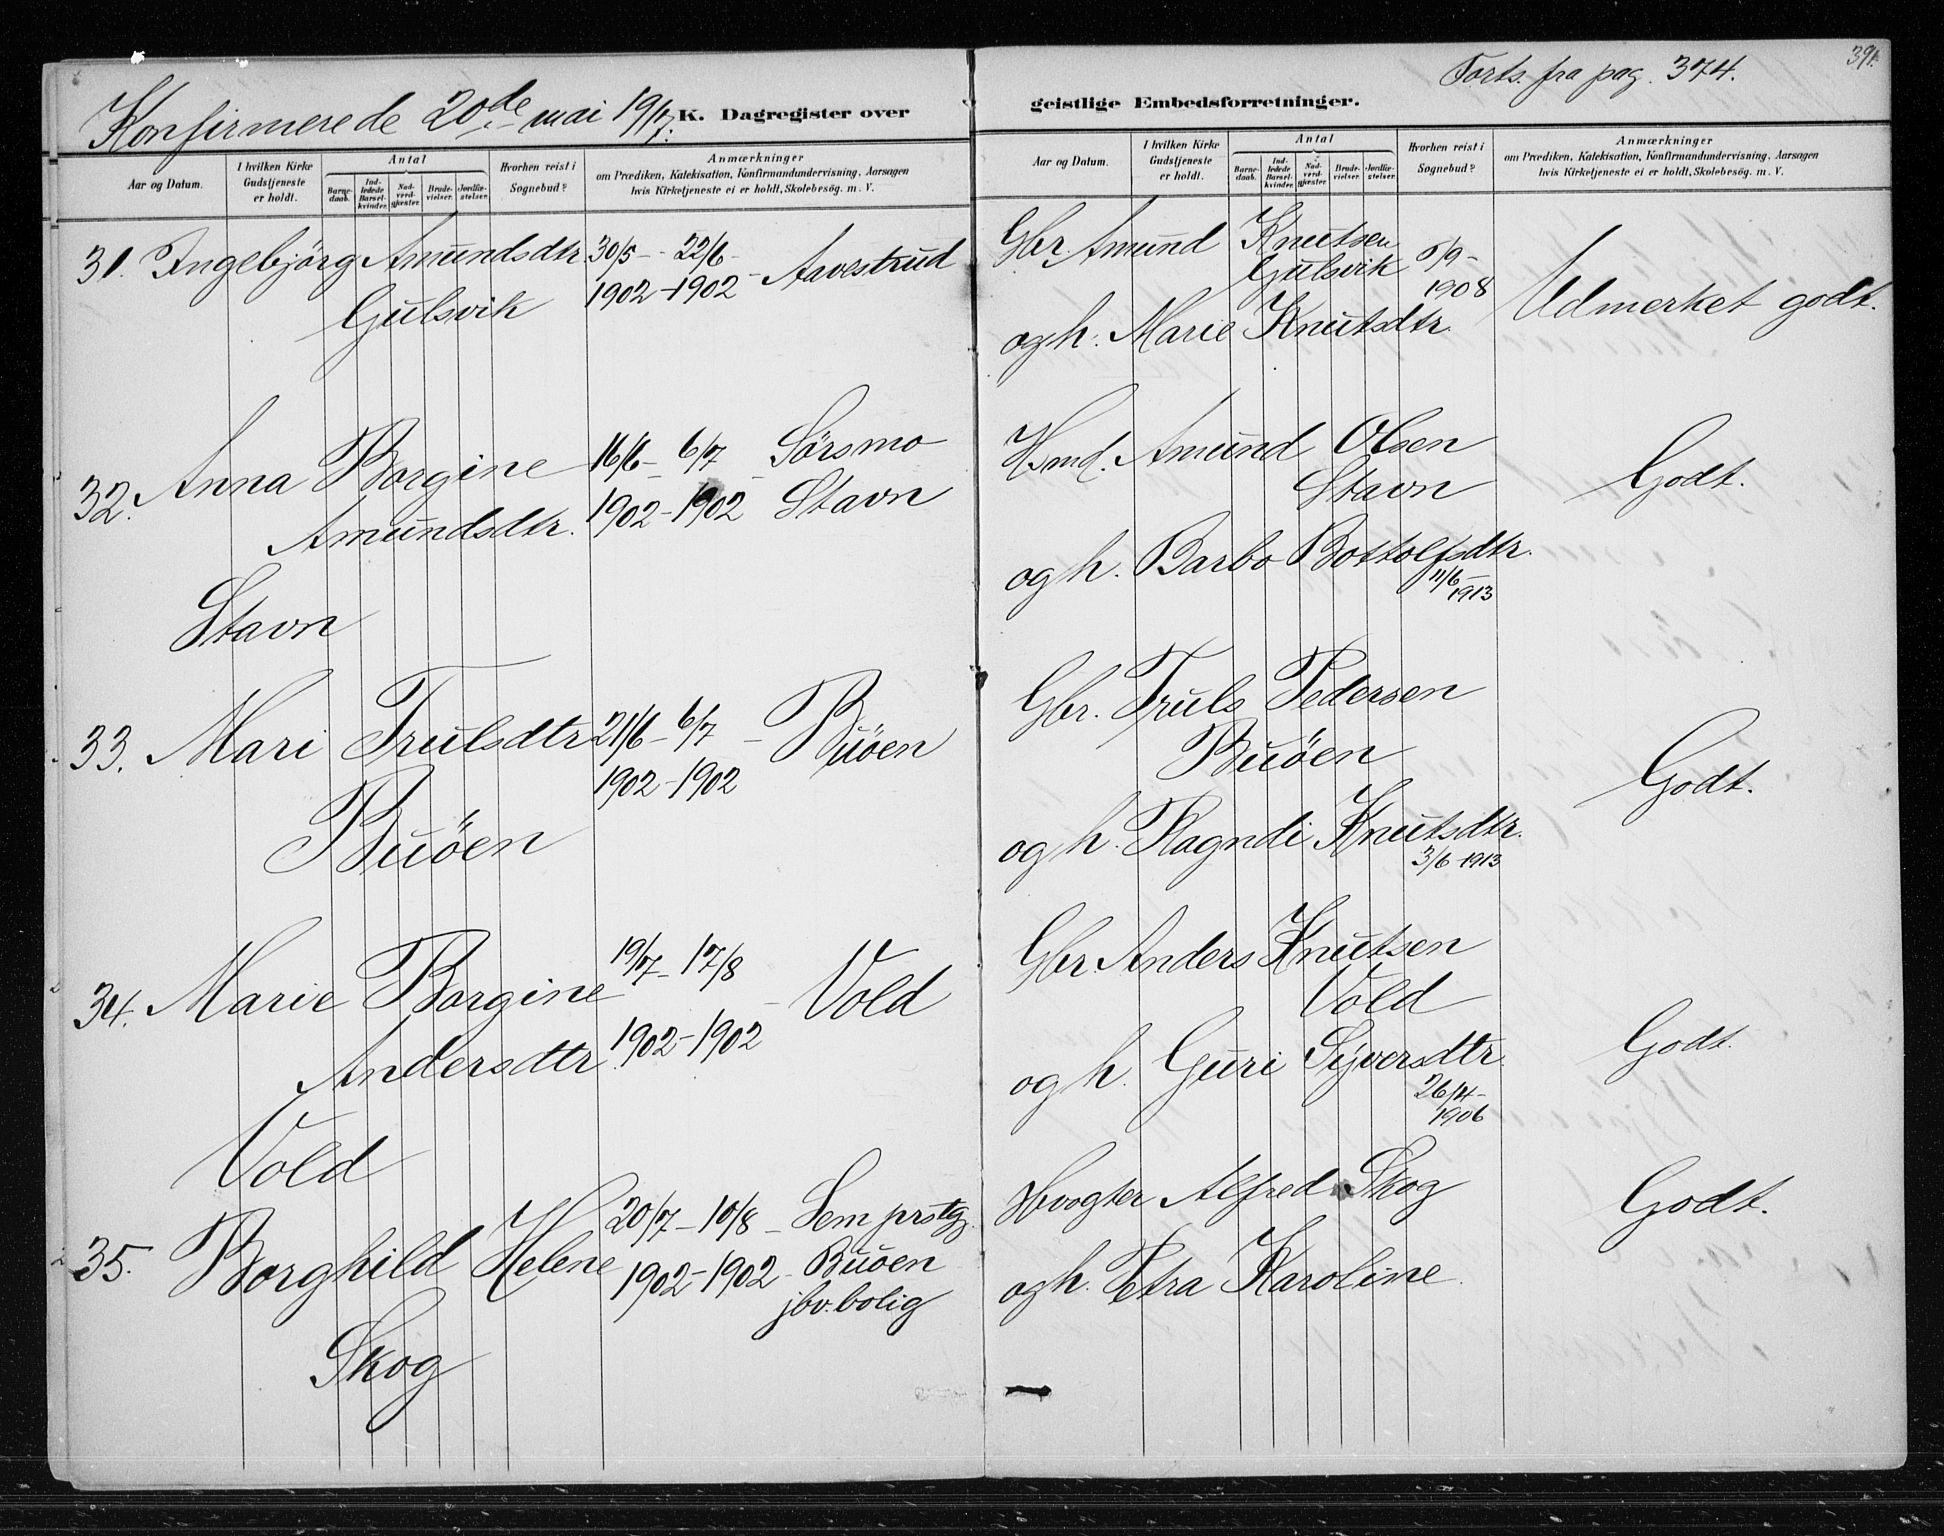 Forts. fra pag. 374.
391.
Konfirmerede 20de mai 1917.
K. Dagregister over
geistlige Embedsforretninger.
Aar og Datum.
I hvilken Kirke Gudstjeneste er holdt.
Antal
Barnedaab.
Indledede Barselkvinder.
Nadverdgjester.
Brudevielser.
Jordfæstelser.
Hvorhen reist i Sognebud?
Anmærkninger
om Prædiken, Katekisation, Konfirmandundervisning, Aarsagen
hvis Kirketjeneste ei er holdt, Skolebesög. m. V.
Aar og Datum.
I hvilken Kirke Gudstjeneste er holdt.
Antal
Barnedaab.
Indledede Barselkvinder.
Nadverdgjester.
Brudevielser.
Jordfæstelser.
Hvorhen reist i Sognebud?
Anmærkninger
om Prædiken, Katekisation, Konfirmandundervisning, Aarsagen
hvis Kirketjeneste ei er holdt, Skolebesög. m. V.
31. Ingebjörg Amundsdtr. 30/5 - 22/6 -
Gulsvik 1902 - 1902 - Aavestrud
Gbr. Amund Knutsen
Gulsvik 5/9 -
1908
og h. Marie Knutsdtr.
Udmerket godt.
32. Anna Borgine 16/6 - 6/7 - Sörsmo
Amundsdtr. 1902 - 1902 Stavn
Stavn
Hsmd. Amund Olsen
Stavn
og h. Barbo Bottolfsdtr.
11/6 -
1913
Godt.
33. Mari Trulsdtr 21/6 - 6/7 - Buöen
Buöen 1902 - 1902
Gbr. Truls Pedersen
Buöen
og h. Ragndi Knutsdtr.
3/6 1913
Godt.
34. Marie Borgine 19/7 - 17/8 - Vold
Andersdtr. 1902 - 1902
Vold
Gbr. Anders Knutsen
Vold
og h. Guri Syversdtr.
26/4 -
1906
Godt.
35. Borghild Helene 20/7 - 10/8 - Sem prstg.
Skog 1902 - 1902 - Buöen
jbv. bolig
Hvogter Alfred Skog
og h. Petra Karoline.
Godt.